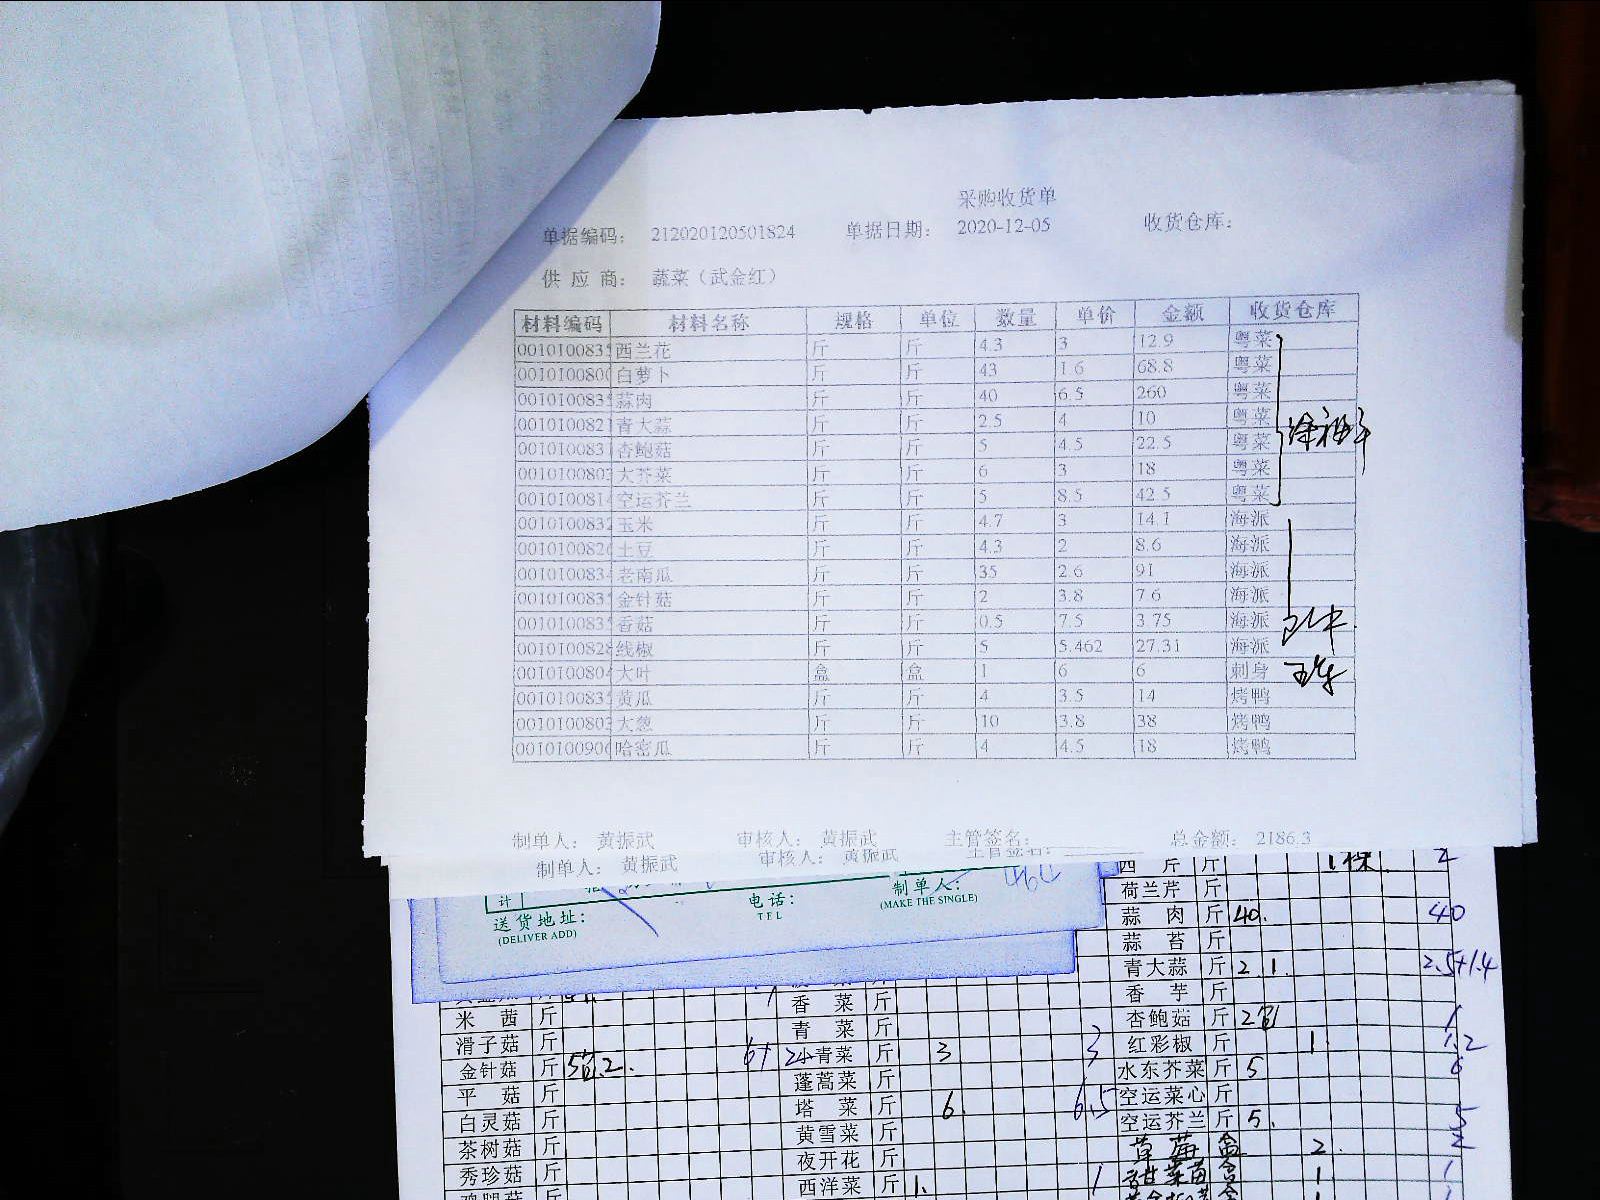 采购收货单
单据编码： 212020120501824 单据日期： 2020-12-05 收货仓库：
供 应 商： 蔬菜（武金红）
材料编码 材料名称 规格 单位 数量 单价 金额 收货仓库
001010083 西兰花 斤 斤 4.3 3 12.9 粤菜
0010100800 白萝卜 斤 斤 43 1.6 68.8 粤菜
001010083 蒜肉 斤 斤 40 6.5 260 粤菜
001010082 青大蒜 斤 斤 2.5 4 10 粤菜
001010083 杏鲍菇 斤 斤 5 4.5 22.5 粤菜
001010080 大芥菜 斤 斤 6 3 18 粤菜
001010081 空运芥兰 斤 斤 5 8.5 42.5 粤菜
001010083 玉米 斤 斤 4.7 3 14.1 海派
001010082 土豆 斤 斤 4.3 2 8.6 海派
001010083 老南瓜 斤 斤 35 2.6 91 海派
001010083 金针菇 斤 斤 2 3.8 7.6 海派
001010083 香菇 斤 斤 0.5 7.5 3.75 海派
001010082 线椒 斤 斤 5 5.462 27.31 海派
001010080 大叶 盒 盒 1 6 6 刺身
001010083 黄瓜 斤 斤 4 3.5 14 烤鸭
001010080 大葱 斤 斤 10 3.8 38 烤鸭
001010090 哈密瓜 斤 斤 4 4.5 18 烤鸭
制单人： 黄振武 审核人： 黄振武 主管签名： 总金额： 2186.3
制单人： 黄振武 审核人： 黄振武 主管签名：
计
送货地址： 电话： 制单人：
(DELIVER ADD) TEL (MAKE THE SINGLE)
西 芹 斤 1棵.
荷兰芹 斤
蒜 肉 斤 40. 40
蒜 苔 斤
青大蒜 斤 2 1. 2.5+1.4
香 芋 斤
杏鲍菇 斤
红彩椒 斤 1. 1.2
水东芥菜 斤 5 6
空运菜心 斤
空运芥兰 斤 5. 5
草莓 盒 2.
1 1
香 菜 斤
青 菜 斤
小青菜 斤 3 3
蓬蒿菜 斤
塔 菜 斤 6. 6.5
黄雪菜 斤
夜开花 斤
西洋菜 斤 1. 1
米 茜 斤
滑子菇 斤
金针菇 斤
平 菇 斤
白灵菇 斤
茶树菇 斤
秀珍菇 斤